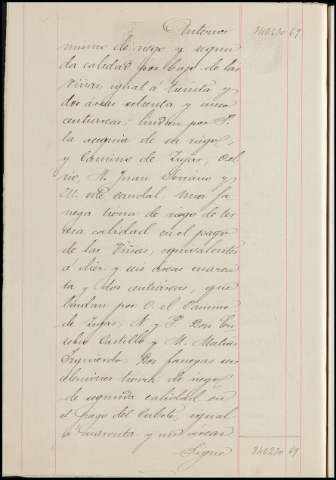 Anterior 240230 69
mino de riego y segun
da calidad por bajo de las
Viñas, igual á treinta y
dos áreas ochenta y cinco
centiáreas; lindan por P.
la acequia de su riego,
y Camino de Zujar, O el
rio, N. Juan y
M. este caudal. Una fa
nega tierra de riego de ter
cera calidad en el pago
de las Viñas, equivalentes
á diez y seis áreas cuaren
ta y dos centiáreas, que
lindan por O. el Camino
de Zujar, N y P. Don Eu
sebio Castillo y M. Matias
Izquierdo. Dos fanegas un
celemines tierra de riego
de segunda calidad en
el pago del Cubete, igual
á cuarenta y un áreas
Sigue 240230 69